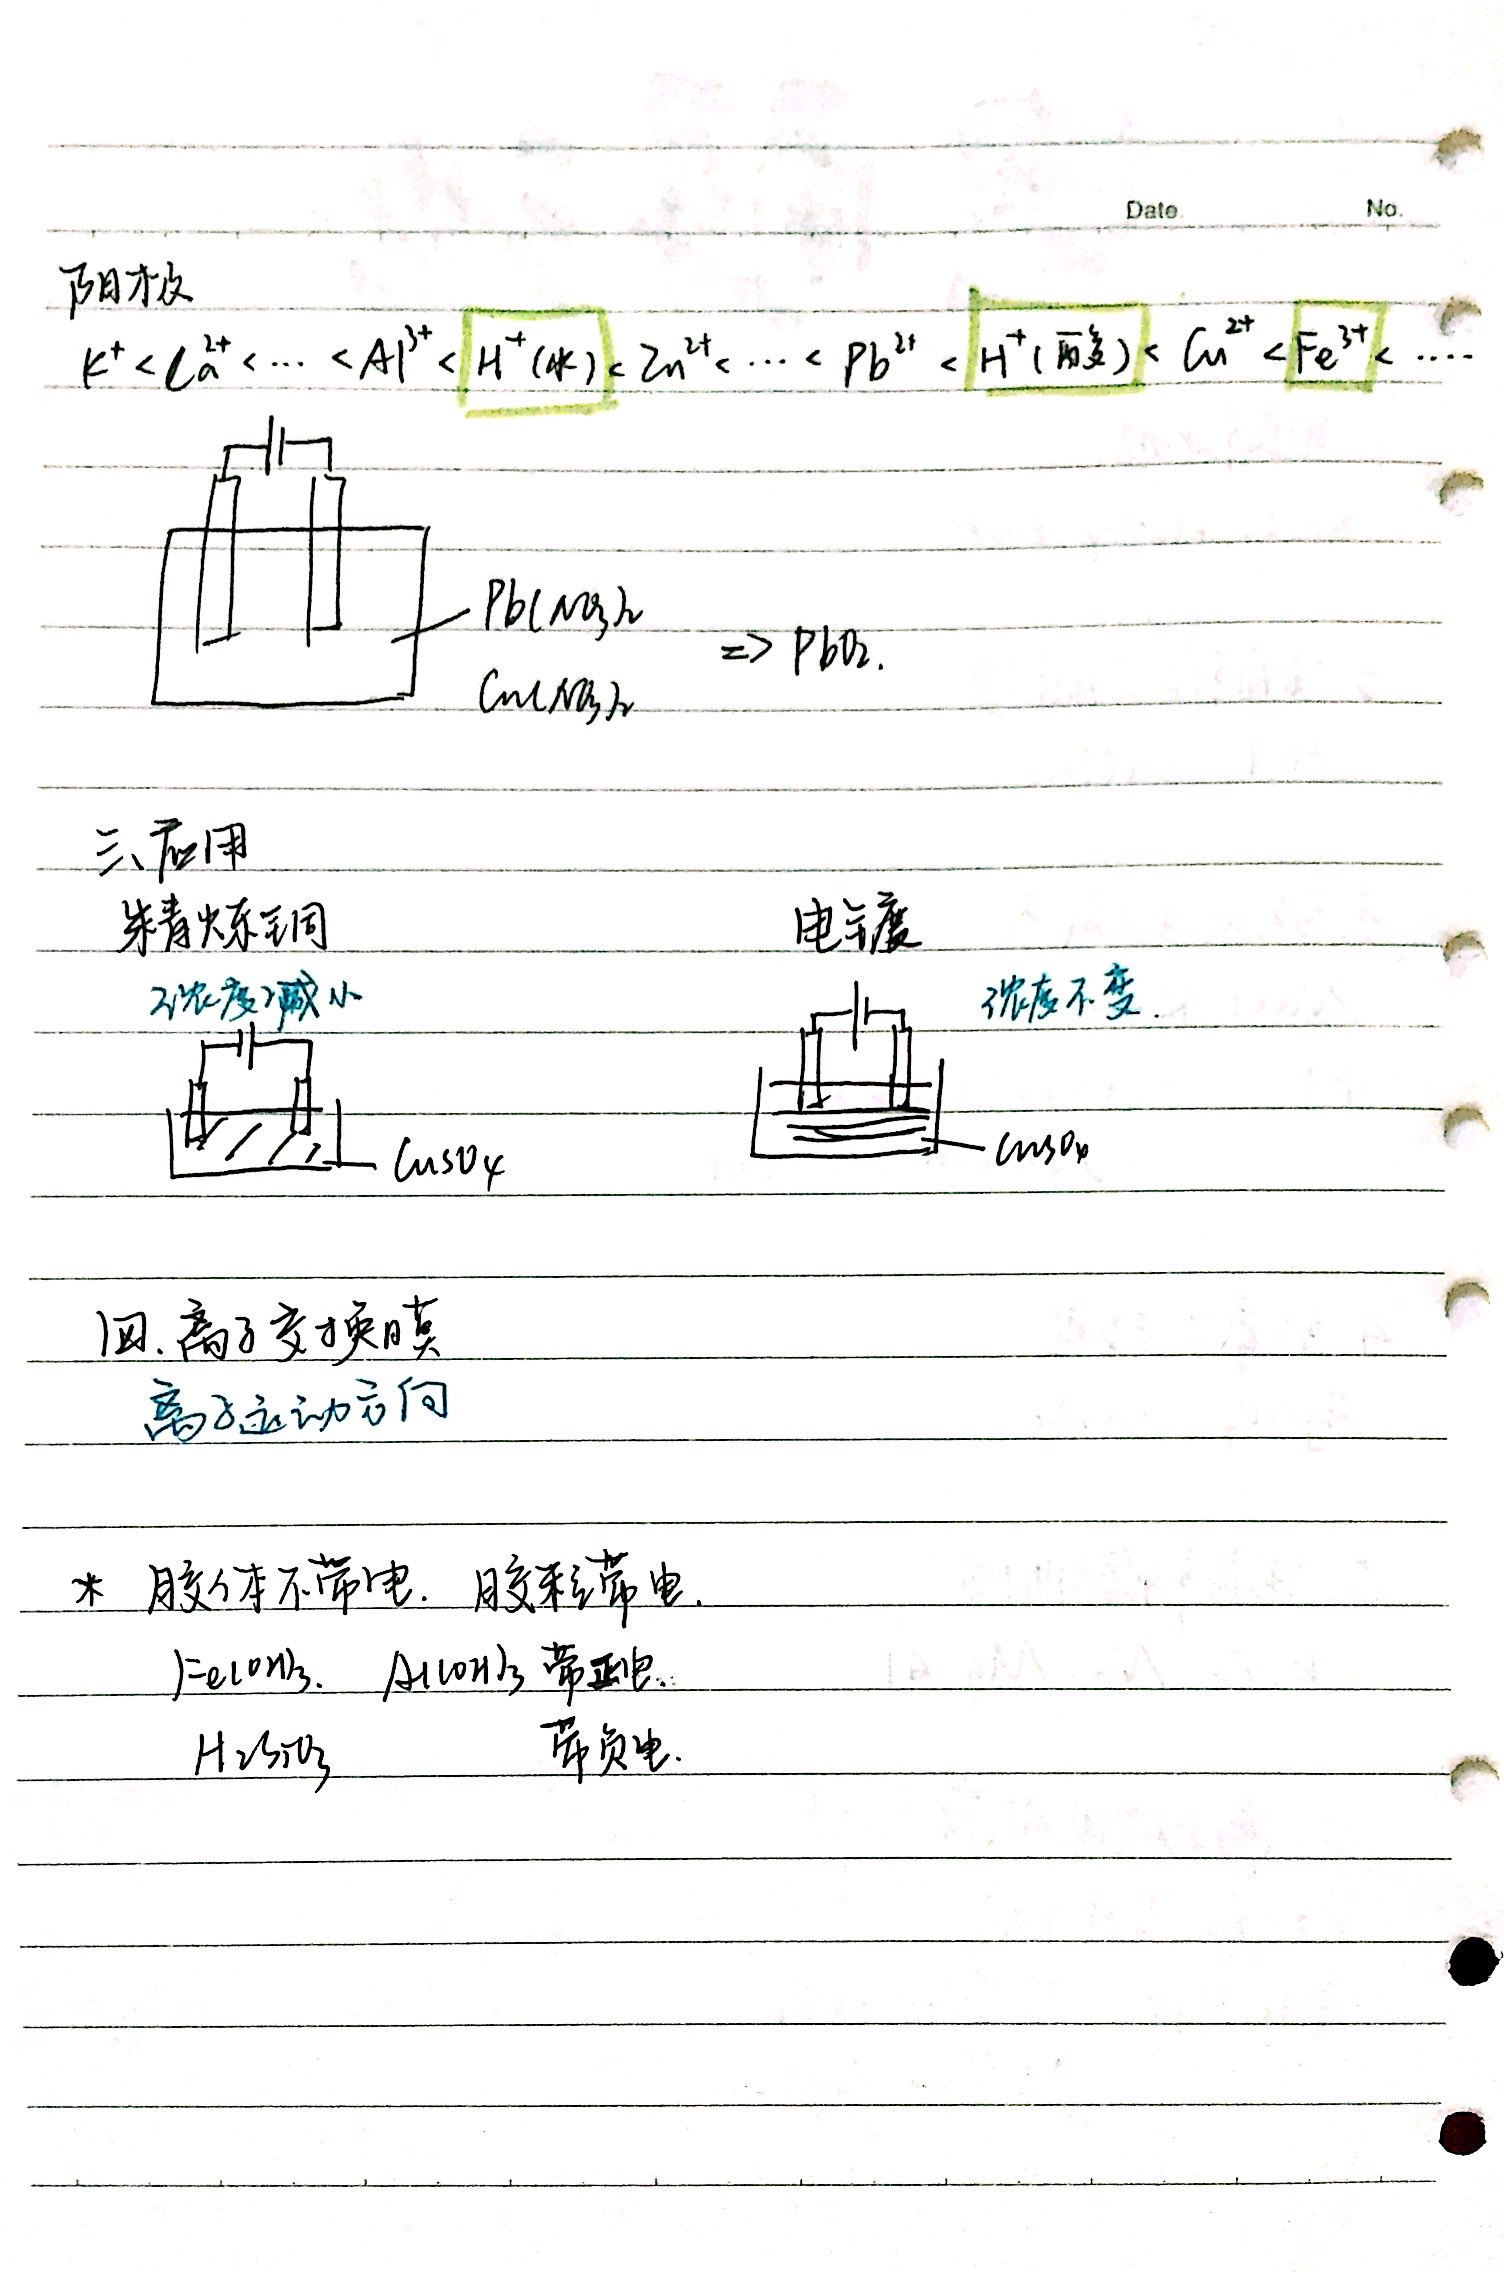 Date No.
阳极
K⁺ < Ca²⁺ < … < Al³⁺ < H⁺(水) < Zn²⁺ < … < Pb²⁺ < H⁺(酸) < Cu²⁺ < Fe³⁺ < ……
Pb(NO₃)₂
=> PbO₂.
Cu(NO₃)₂
三、应用
精炼铜 电镀
浓度减小 浓度不变.
CuSO₄ CuSO₄
四.离子交换膜
离子运动方向
* 胶体不带电. 胶粒带电.
Fe(OH)₃. Al(OH)₃ 带正电.
H₂SiO₃ 带负电.